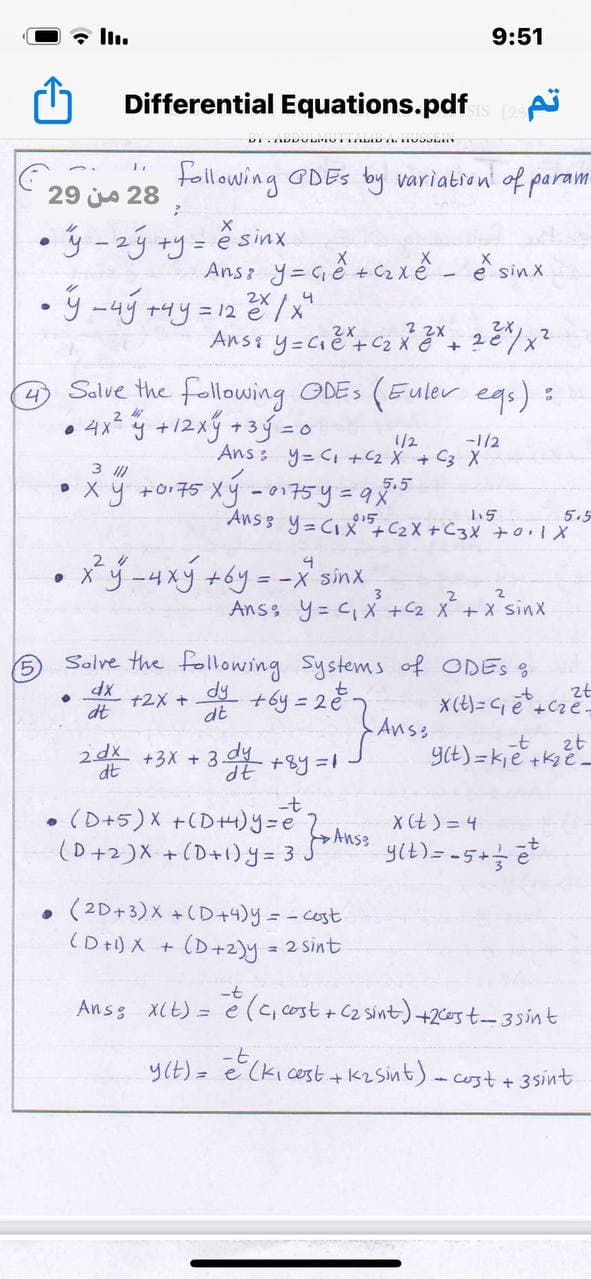 9:51
Differential Equations.pdf تم
BY : ABDULMUTTALIB A. HUSSEIN
28 من 29
following ODEs by variation of param
:
• y'' - 2y' + y = e^x sinx
Ans: y = c₁e^x + c₂xe^x - e^x sinx
• y'' - 4y' + 4y = 12 e^2x / x^4
Ans: y = c₁e^2x + c₂ x^2 e^2x + 2e^2x/x^2
④ Solve the following ODEs (Euler eqs) :
• 4x^2 y''' + 12xy'' + 3y' = 0
Ans: y = c₁ + c₂ x^1/2 + c₃ x^-1/2
• x^3 y''' + 0.75 xy' - 0.75y = 9x^5.5
Ans: y = c₁x^0.5 + c₂x + c₃x^1.5 + 0.1 x^5.5
• x^2 y'' - 4xy' + 6y = -x^4 sinx
Ans: y = c₁ x^3 + c₂ x^2 + x^2 sinx
⑤ Solve the following Systems of ODEs :
• dx/dt + 2x + dy/dt + 6y = 2e^t
2 dx/dt + 3x + 3 dy/dt + 8y = 1
Ans:
x(t) = c₁e^-t + c₂e^2t -
y(t) = k₁e^-t + k₂e^2t -
• (D+5)x + (D+4)y = e^-t
(D+2)x + (D+1)y = 3
Ans:
x(t) = 4
y(t) = -5 + 1/3 e^-t
• (2D+3)x + (D+4)y = - cost
(D+1)x + (D+2)y = 2 sint
Ans: x(t) = e^-t (c₁ cost + c₂ sint) + 2cost - 3sint
y(t) = e^-t (k₁ cost + k₂ sint) - cost + 3sint